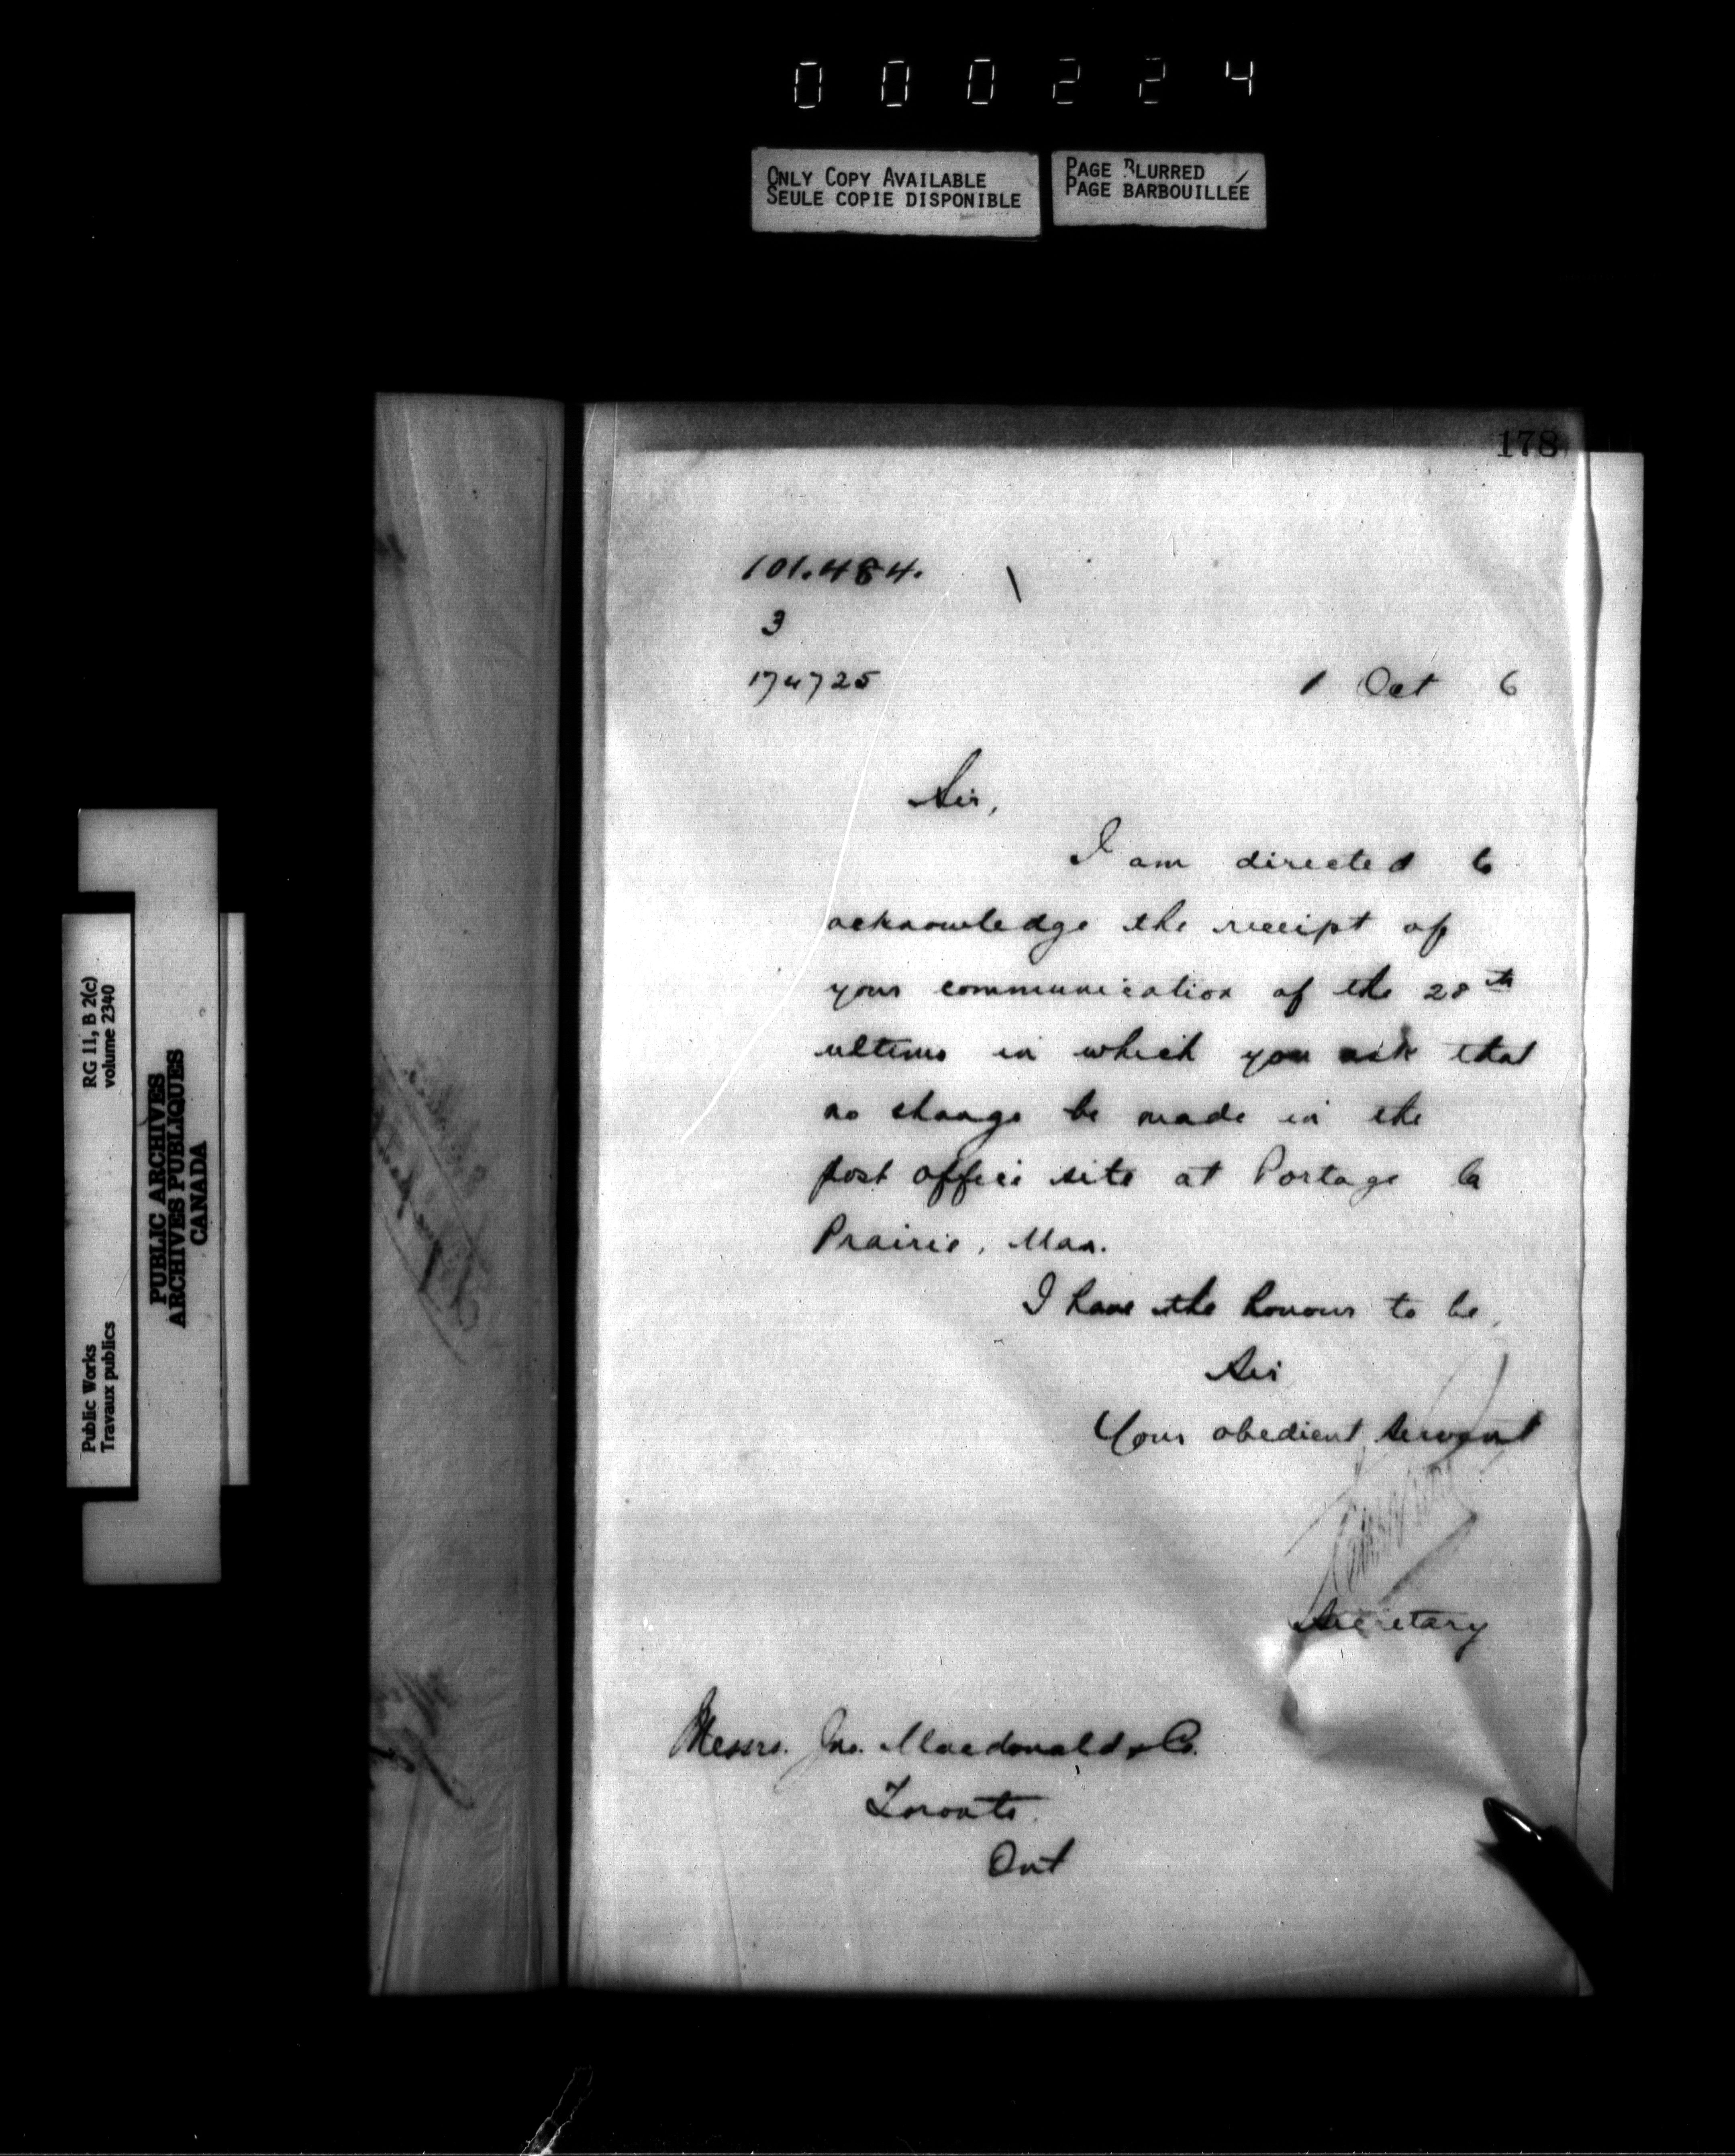 000224
ONLY COPY AVAILABLE
SEULE COPIE DISPONIBLE
PAGE BLURRED
PAGE BARBOUILLÉE
178
101.484.
3
174725
1 Oct 6
Sir,
I am directed to
acknowledge the receipt of
your communication of the 28th
ultimo in which you ask that
no change be made in the
post office site at Portage la
Prairie, Man.
I have the honour to be,
Sir
Your obedient servant
Secretary
Messrs. Jno. Macdonald & Co.
Toronto.
Ont
Public Works
Travaux publics
RG 11, B 2(c)
volume 2340
PUBLIC ARCHIVES
ARCHIVES PUBLIQUES
CANADA